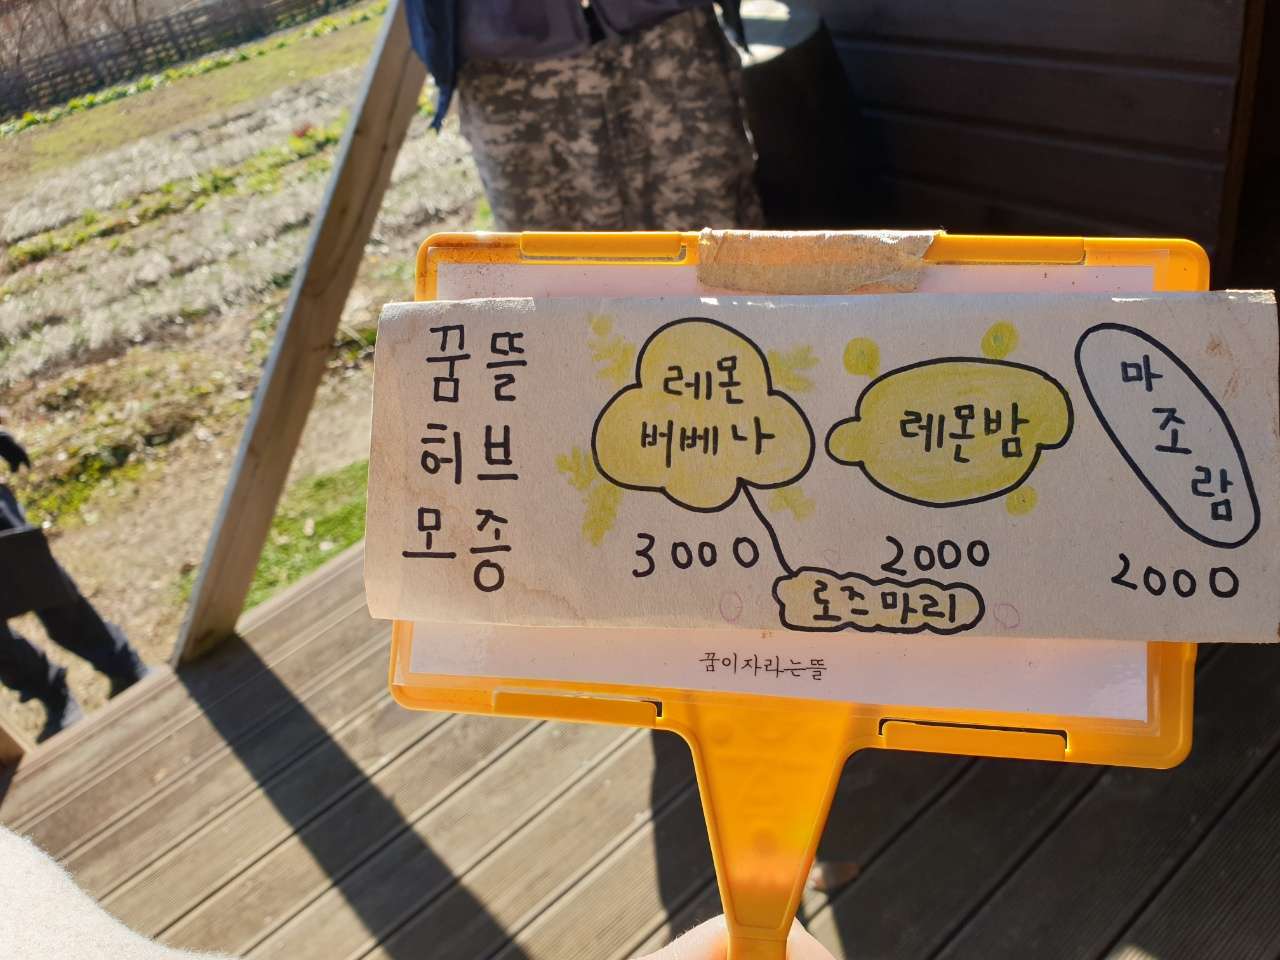 꿈뜰
허브
모종
레몬
버베나
3000
로즈마리
레몬밤
2000
마조람
2000
꿈이자라는뜰